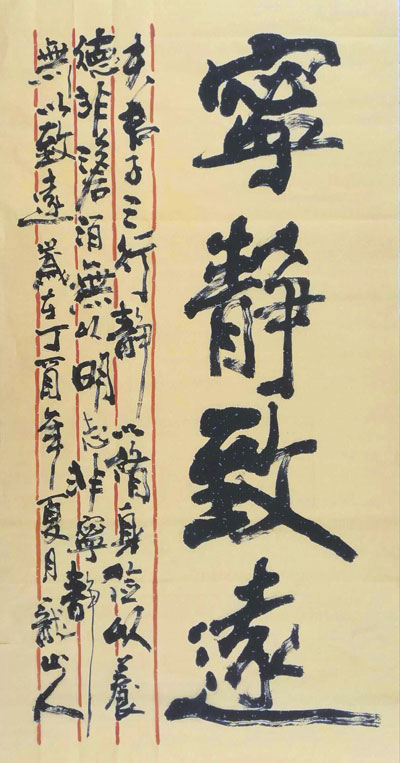 寧靜致遠
夫君子之行靜以脩身儉以養
德非澹泊無以明志非寧靜
無以致遠歲在丁酉年夏月龍山人